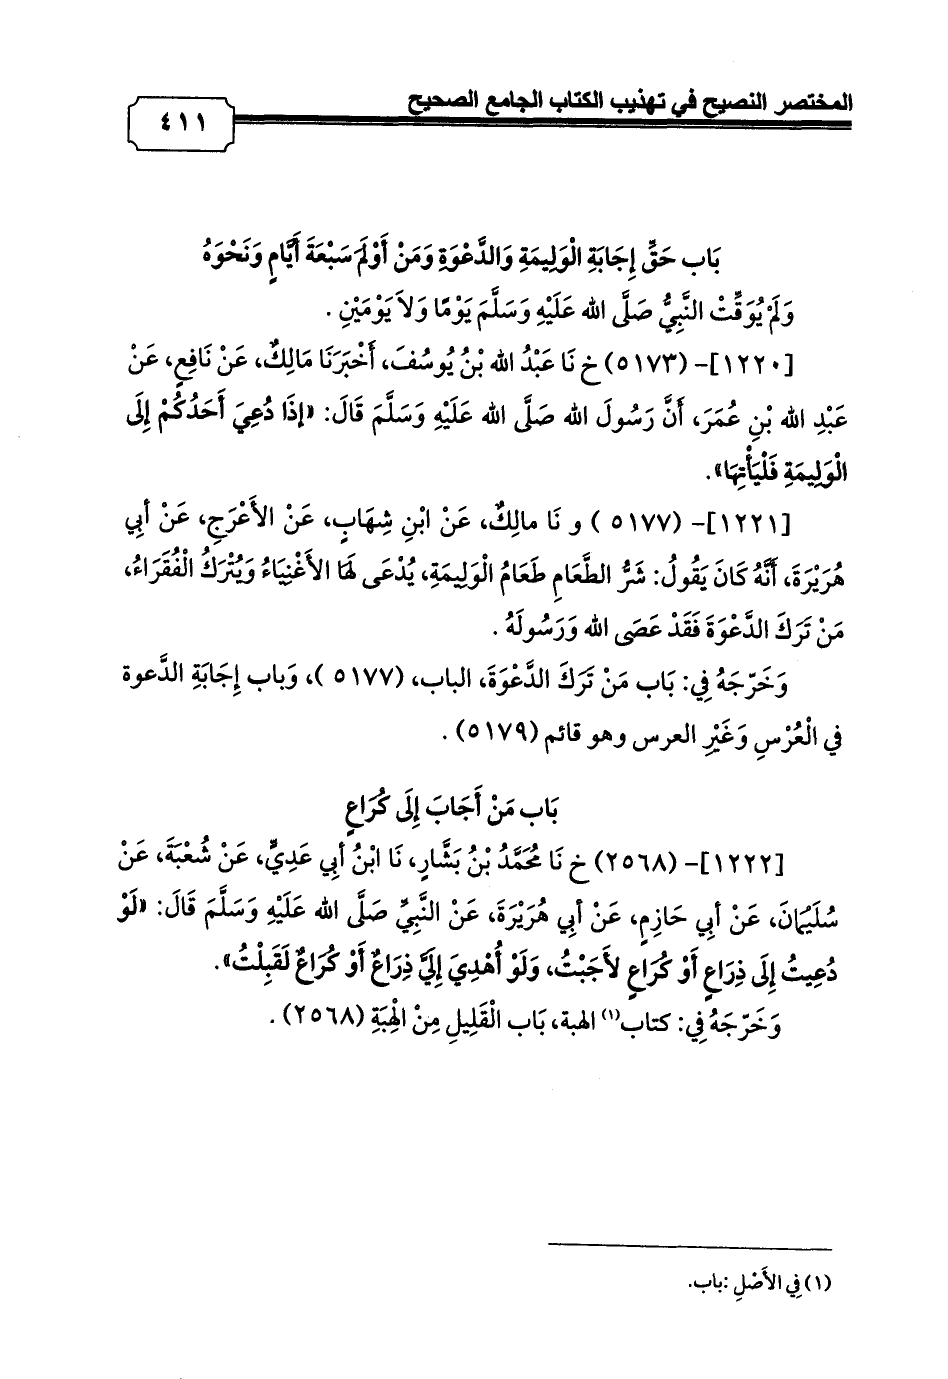 المختصر النصيح في تهذيب الكتاب الجامع الصحيح
٤١١
بَاب حَقِّ إِجَابَةِ الْوَلِيمَةِ وَالدَّعْوَةِ وَمَنْ أَوْلَمَ سَبْعَةَ أَيَّامٍ وَنَحْوَهُ
وَلَمْ يُوَقِّتْ النَّبِيُّ صَلَّى الله عَلَيْهِ وَسَلَّمَ يَوْمًا وَلاَ يَوْمَيْنِ .
[١٢٢٠]- (٥١٧٣) خ نَا عَبْدُ الله بْنُ يُوسُفَ، أَخْبَرَنَا مَالِكٌ، عَنْ نَافِعٍ، عَنْ
عَبْدِ الله بْنِ عُمَرَ، أَنَّ رَسُولَ الله صَلَّى الله عَلَيْهِ وَسَلَّمَ قَالَ: «إِذَا دُعِيَ أَحَدُكُمْ إِلَى
الْوَلِيمَةِ فَلْيَأْتِهَا».
[١٢٢١]- (٥١٧٧ ) و نَا مالِكٌ، عَنْ ابْنِ شِهَابٍ، عَنْ الأَعْرَجِ، عَنْ أبي
هُرَيْرَةَ، أَنَّهُ كَانَ يَقُولُ: شَرُّ الطَّعَامِ طَعَامُ الْوَلِيمَةِ، يُدْعَى لَهَا الأَغْنِيَاءُ وَيُتْرَكُ الْفُقَرَاءُ،
مَنْ تَرَكَ الدَّعْوَةَ فَقَدْ عَصَى الله وَرَسُولَهُ .
وَخَرّجَهُ فِي: بَاب مَنْ تَرَكَ الدَّعْوَةَ، الباب، (٥١٧٧ )، وَباب إِجَابَةِ الدَّعوة
في الْعُرْسِ وَغَيْرِ العرس وهو قائم (٥١٧٩) .
بَاب مَنْ أَجَابَ إِلَى كُرَاعٍ
[١٢٢٢]- (٢٥٦٨) خ نَا مُحَمَّدُ بْنُ بَشَّارٍ، نَا ابْنُ أبي عَدِيٍّ، عَنْ شُعْبَةَ، عَنْ
سُلَيْمَانَ، عَنْ أبي حَازِمٍ، عَنْ أبي هُرَيْرَةَ، عَنْ النَّبِيِّ صَلَّى الله عَلَيْهِ وَسَلَّمَ قَالَ: «لَوْ
دُعِيتُ إِلَى ذِرَاعٍ أَوْ كُرَاعٍ لأَجَبْتُ، وَلَوْ أُهْدِيَ إِلَيَّ ذِرَاعٌ أَوْ كُرَاعٌ لَقَبِلْتُ».
وَخَرّجَهُ فِي: كتاب(١) الهبة، بَاب الْقَلِيلِ مِنْ الْهِبَةِ (٢٥٦٨) .
(١) فِي الأَصْلِ :باب.